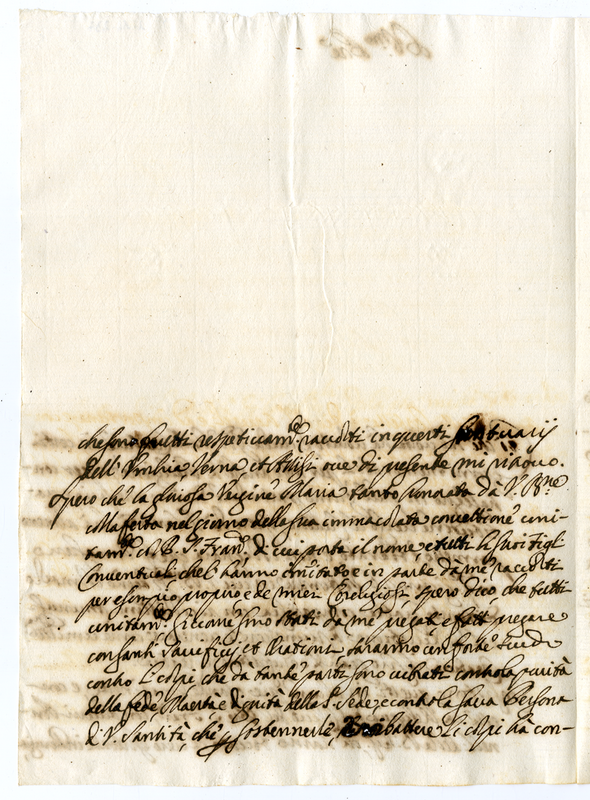 che sono frutti respettivam.te raccolti in questi Santuarij
dell' Umbria, Verna, et Assisi ove di presente mi ritrovo.
Spero che la gloriosa Vergine Maria tanto honorata dà V. B.ne
Maffetta nel giorno della sua immacolata concettione uni-
tam.te al B. P. Fran.co di cui porta il nome, e tutti li suoi figli
Conventuali che l' hanno imitato e in parte dà me raccolti
per esempio proprio e de miei Religiosi, spero dico, che tutti
unitam.te siccome sono stati dà me pregati, e fatti pregare
con santi Sacrificij et Orationi saranno un forte scudo
contro li colpi che dà tante parti sono vibrati contro la purità
della fede, Maestà e dignità della S. Sede, e contro la sacra Persona
di V. Santità, che p sostennerle, e ribattere li colpi hà con-